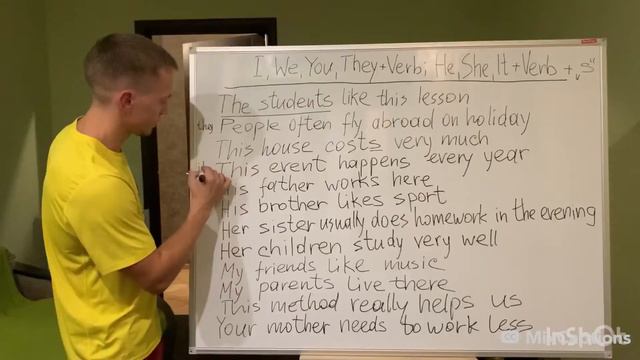 I, We, You, They + Verb; He, She, It + Verb + „S"
The students like this lesson
they People often fly abroad on holiday
This house costs very much
This event happens every year
His father works here
His brother likes sport
Her sister usually does homework in the evening
Her children study very well
My friends like music
My parents live there
This method really helps us
Your mother needs to work less